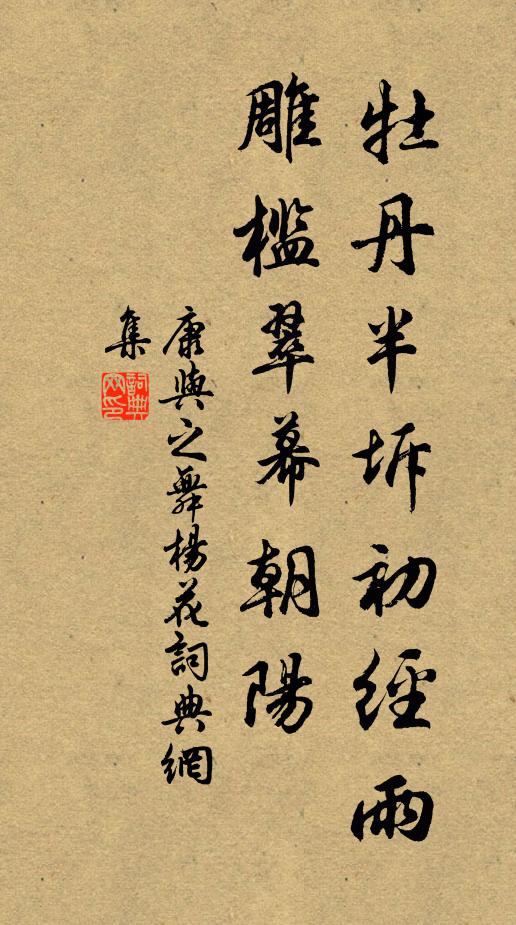 牡丹半坼初經雨
雕檻翠幕朝陽
康與之舞楊花詞典網
集
詞典網印